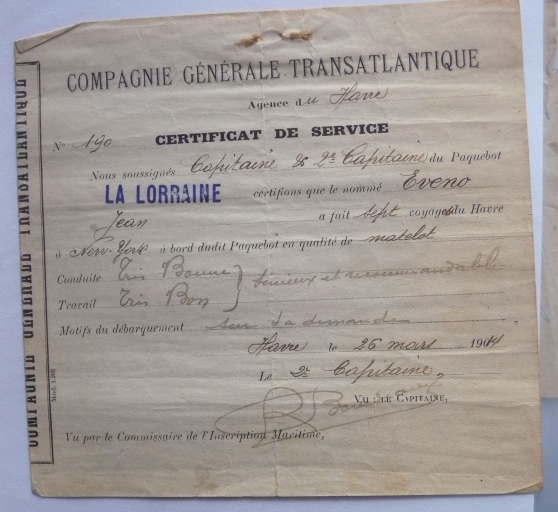 COMPAGNIE GÉNÉRALE TRANSATLANTIQUE
COMPAGNIE GÉNÉRALE TRANSATLANTIQUE
Agence du Havre
N° 190
CERTIFICAT DE SERVICE
Nous soussignés Capitaine & 2e Capitaine du Paquebot
LA LORRAINE certifions que le nommé Eveno
Jean a fait sept voyages du Havre
à New-York à bord dudit Paquebot en qualité de matelot
Conduite Très Bonne } sérieux et recommandable
Travail Très Bon
Motifs du débarquement sur sa demande
Havre le 26 mars 1904
Le 2e Capitaine,
VU : LE CAPITAINE,
Vu par le Commissaire de l'Inscription Maritime,